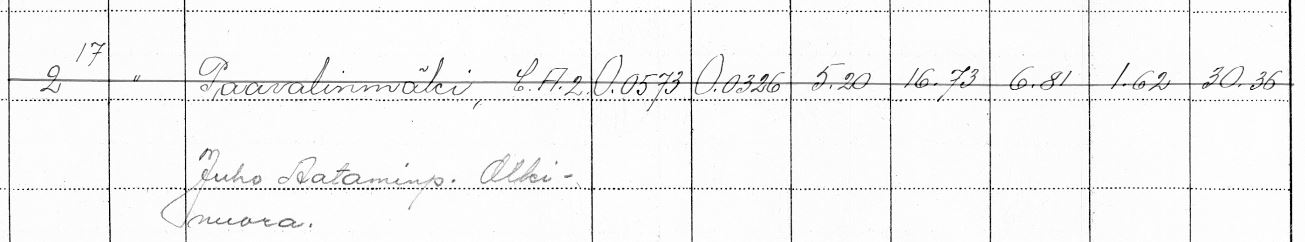 2 17 " Paavalinmäki, C.A.2 0.0573 0.0326 5.20 16.73 6.81 1.62 30.36
Juho Aataminp. Olki-
nuora.